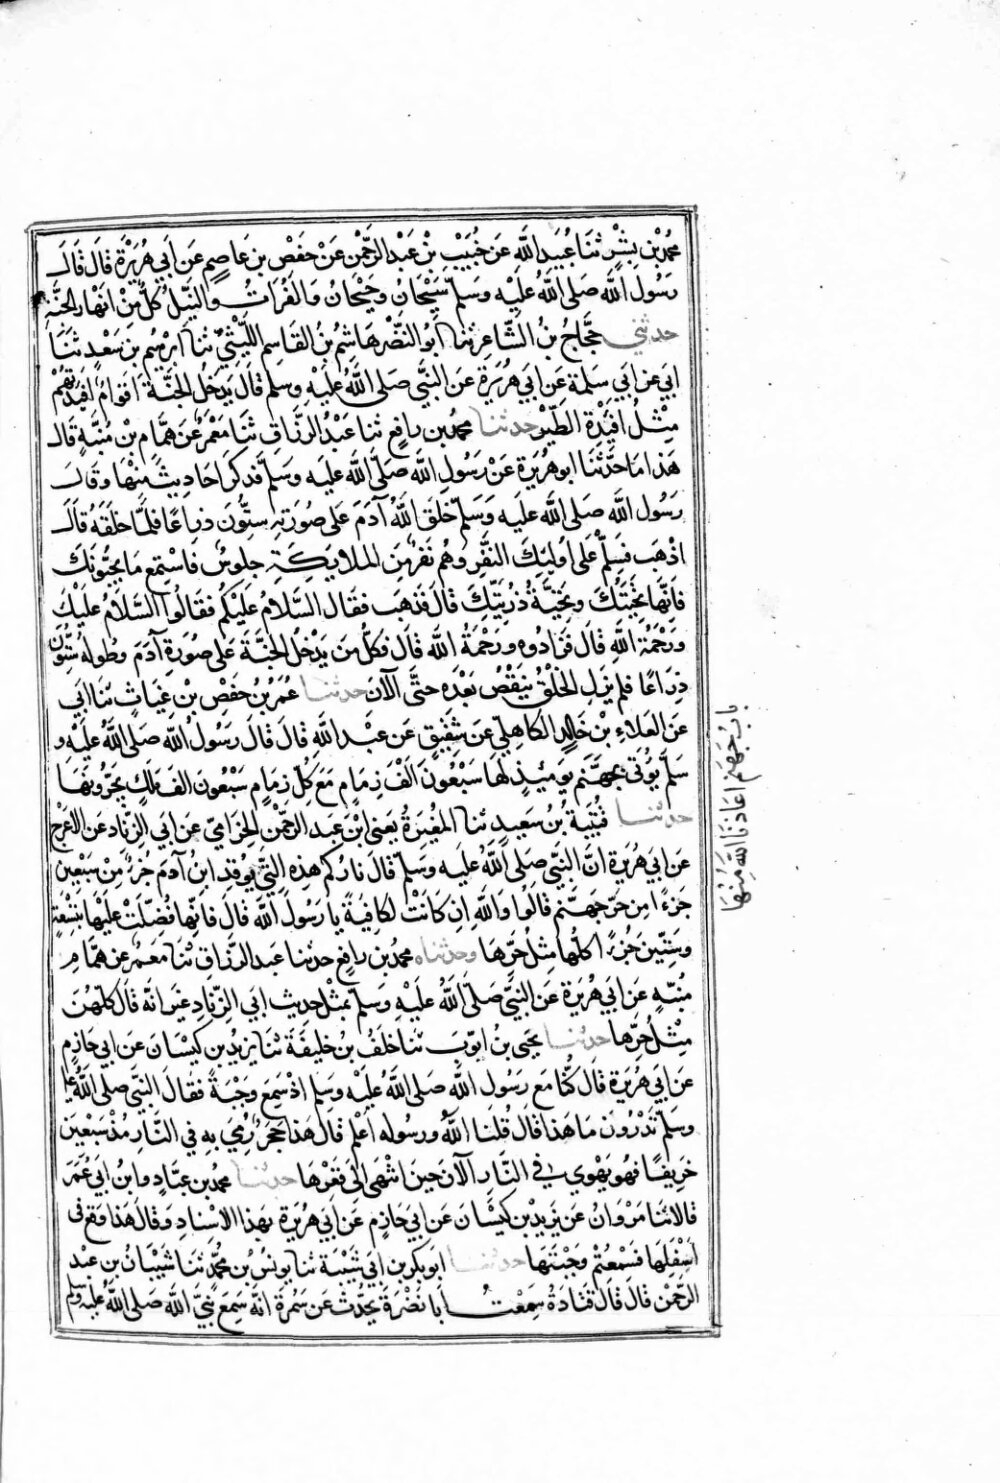 محمد بن بشر ثنا عبيد الله عن خبيب بن عبد الرحمن عن حفص بن عاصم عن ابي هريرة قال قال
رسول الله صلى الله عليه وسلم سيحان وجيحان والفرات والنيل كل من انهار الجنة
حدثني حجاج بن الشاعر ثنا ابو النضر هاشم بن القاسم الليثي ثنا ابرهيم بن سعد ثنا
ابي عن ابي سلمة عن ابي هريرة عن النبي صلى الله عليه وسلم قال يدخل الجنة اقوام افئدتهم
مثل افئدة الطير حدثنا محمد بن رافع ثنا عبد الرزاق ثنا معمر عن همام بن منبه قال
هذا ما حدثنا ابو هريرة عن رسول الله صلى الله عليه وسلم فذكر احاديث منها وقال
رسول الله صلى الله عليه وسلم خلق الله آدم على صورته ستون ذراعا فلما خلقه قال
اذهب فسلم على اولئك النفر وهم نفر من الملايكة جلوس فاستمع ما يحيونك
فانها تحيتك وتحية ذريتك قال فذهب فقال السلام عليكم فقالوا السلام عليك
ورحمة الله قال فزادوه ورحمة الله قال فكل من يدخل الجنة على صورة آدم وطوله ستون
ذراعا فلم يزل الخلق ينقص بعده حتى الآن حدثنا عمر بن حفص بن غياث ثنا ابي
عن العلاء بن خالد الكاهلي عن شقيق عن عبد الله قال قال رسول الله صلى الله عليه و
سلم يؤتى بجهنم يومئذ لها سبعون الف زمام مع كل زمام سبعون الف ملك يجرونها
حدثنا قتيبة بن سعيد ثنا المغيرة يعني ابن عبد الرحمن الحزامي عن ابي الزناد عن الاعرج
عن ابي هريرة ان النبي صلى الله عليه وسلم قال ناركم هذه التي يوقد ابن آدم جزء من سبعين
جزءا من حر جهنم قالوا والله ان كانت لكافية يا رسول الله قال فانها فضلت عليها بتسعة
وستين جزءا كلها مثل حرها وحدثناه محمد بن رافع حدثنا عبد الرزاق ثنا معمر عن همام
منبه عن ابي هريرة عن النبي صلى الله عليه وسلم بمثل حديث ابي الزناد غير انه قال كلهن
مثل حرها حدثنا يحيى بن ايوب ثنا خلف بن خليفة ثنا يزيد بن كيسان عن ابي حازم
عن ابي هريرة قال كنا مع رسول الله صلى الله عليه وسلم اذ سمع وجبة فقال النبي صلى الله عليه
وسلم تدرون ما هذا قال قلنا الله ورسوله اعلم قال هذا حجر رمي به في النار مذ سبعين
خريفا فهو يهوي في النار الآن حين انتهى الى قعرها حدثنا محمد بن عباد وابن ابي عمر
قالا ثنا مروان عن يزيد بن كيسان عن ابي حازم عن ابي هريرة بهذا الاسناد وقال هذا وقع في
اسفلها فسمعتم وجبتها حدثنا ابو بكر بن ابي شيبة ثنا يونس بن محمد ثنا شيبان بن عبد
الرحمن قال قال قتادة سمعت ابا نضرة يحدث عن سمرة انه سمع نبي الله صلى الله عليه وسلم
باب جهنم اعاذنا الله منها